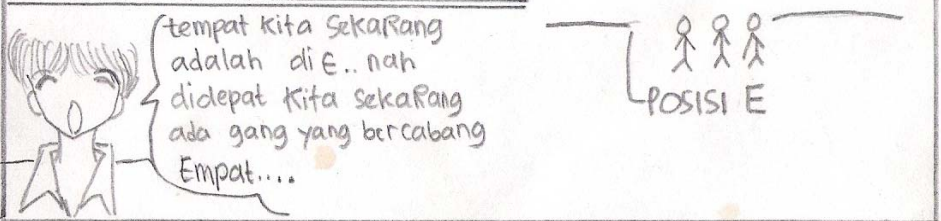 tempat kita sekarang
adalah di E.. nah
didepat kita sekarang
ada gang yang bercabang
Empat....
POSISI E